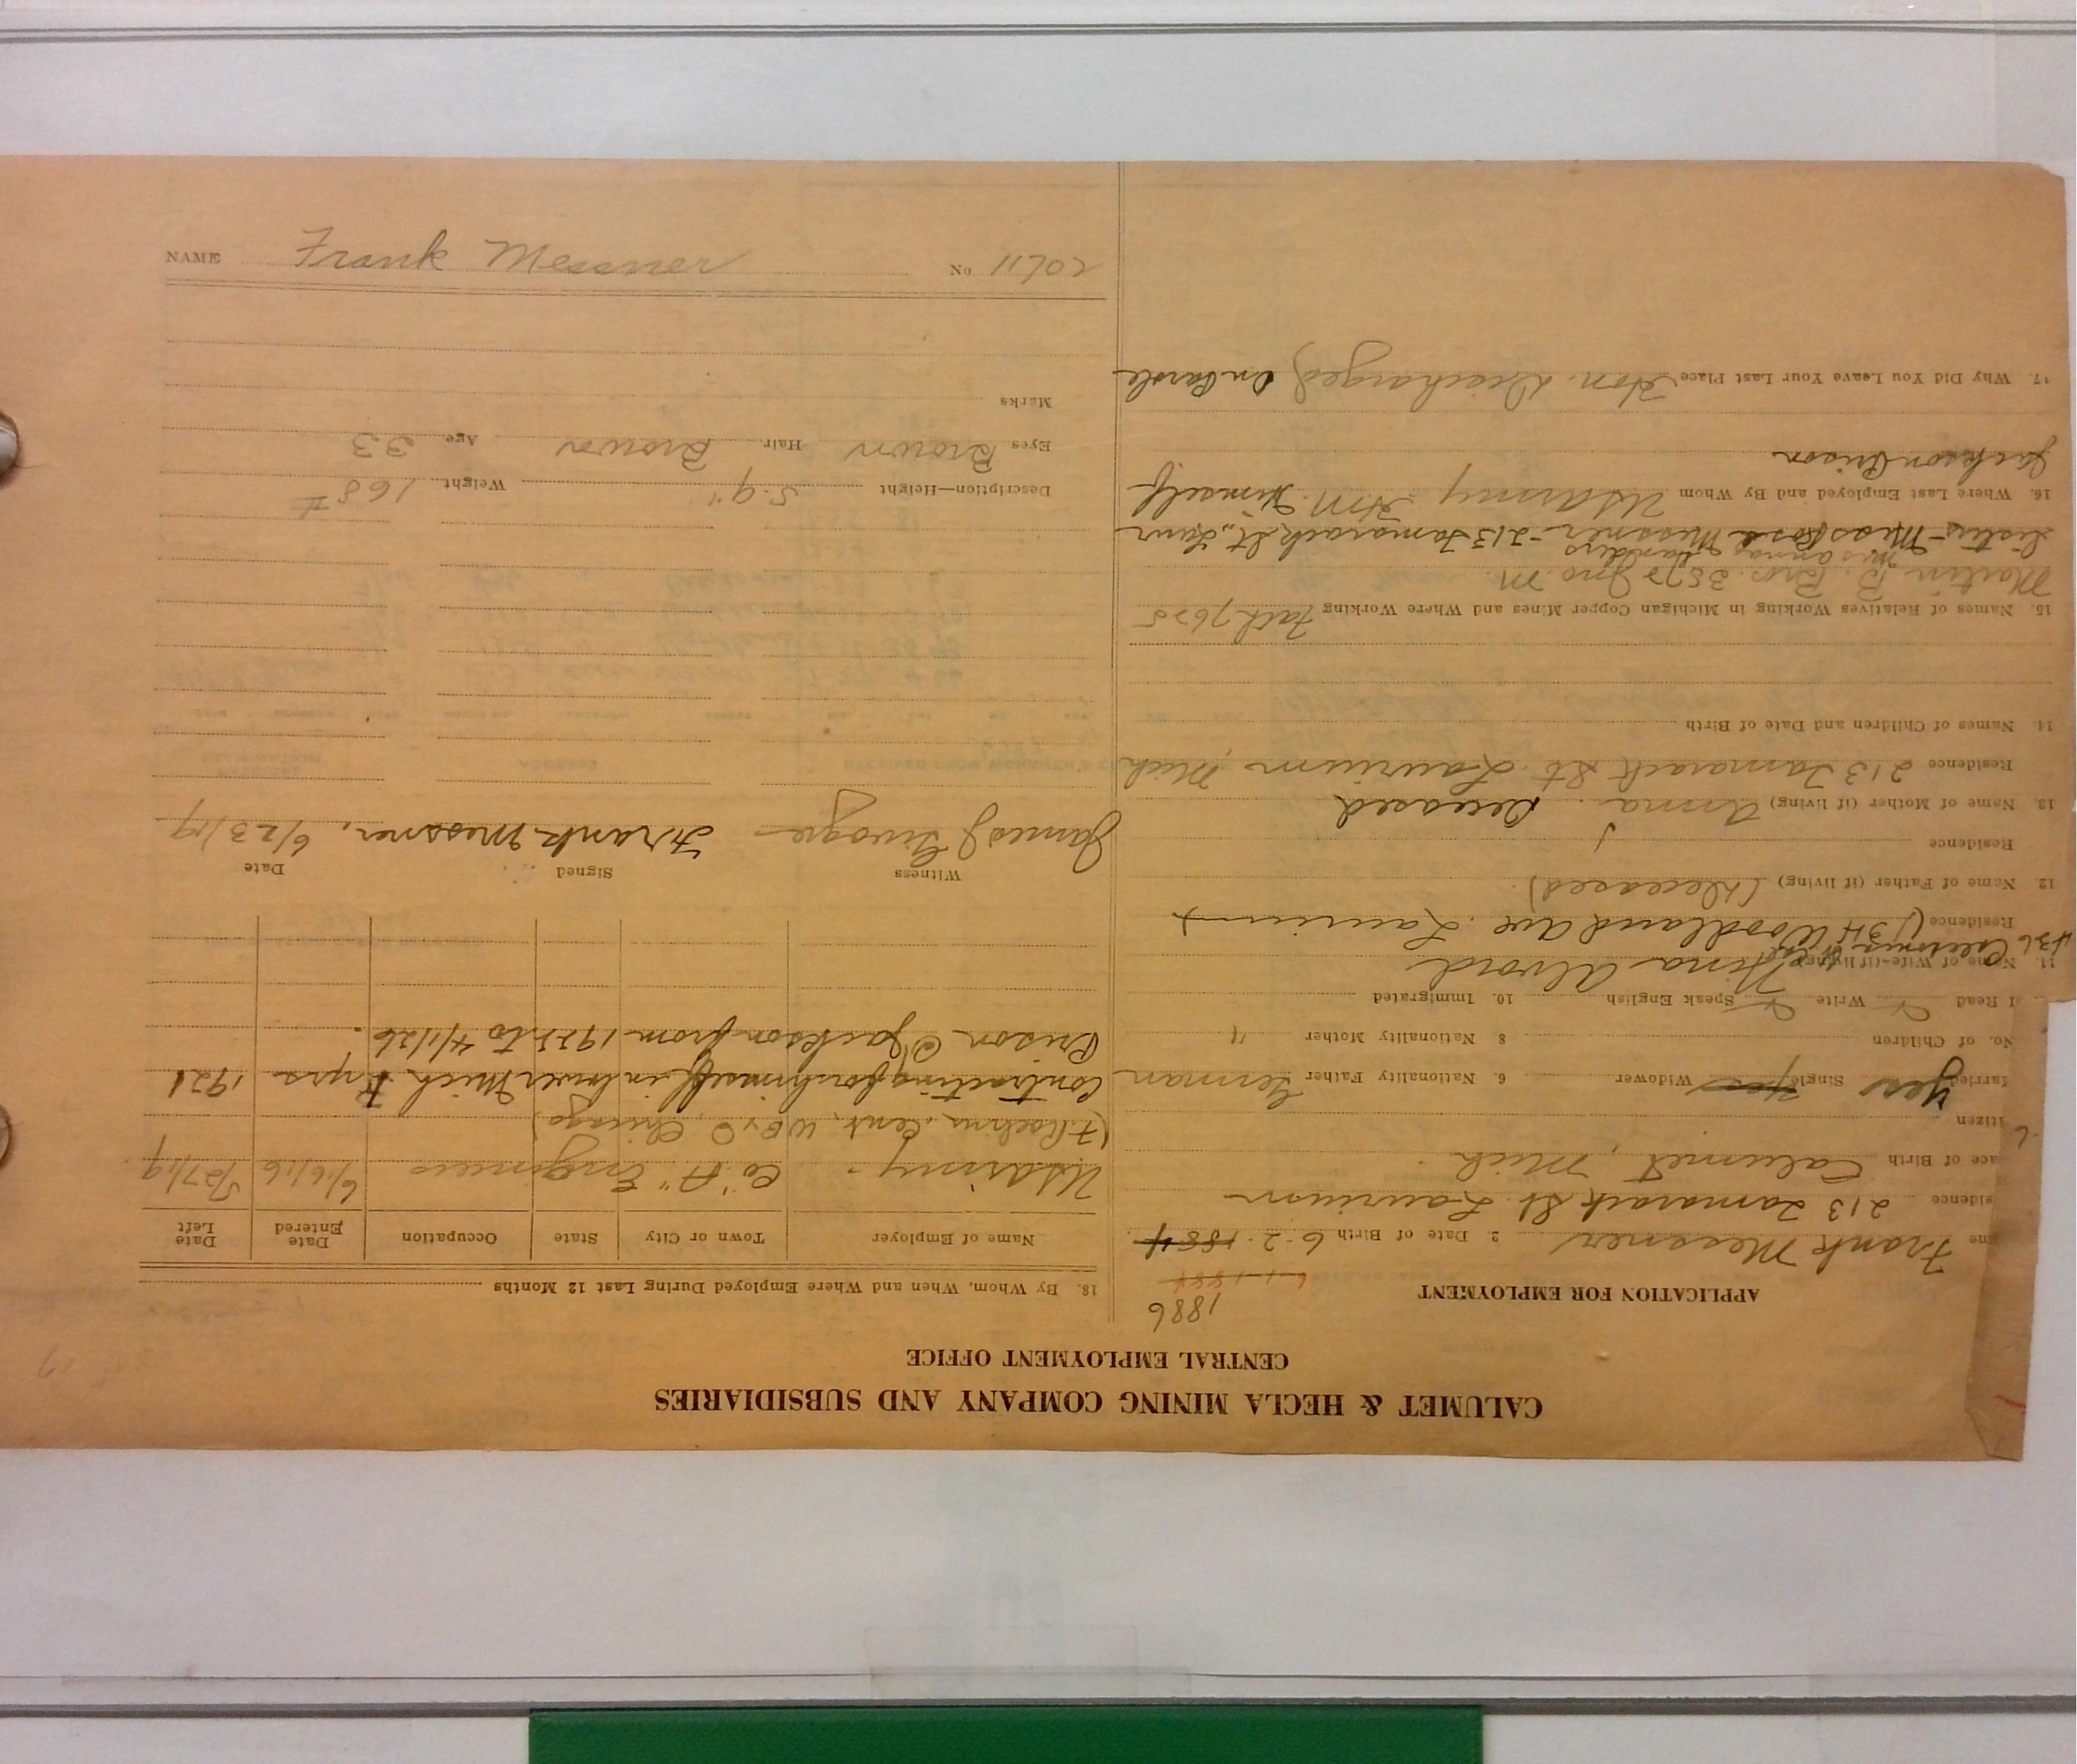 CALUMET & HECLA MINING COMPANY AND SUBSIDIARIES
CENTRAL EMPLOYMENT OFFICE
APPLICATION FOR EMPLOYMENT
1886
6-1-1884
me Frank Messner 2 Date of Birth 6-2-1884
sidence 213 Tamarack St. Laurium
ace of Birth Calumet, Mich.
itizen
Married Yes Single Yes Widower 6. Nationality Father German
No. of Children 8 Nationality Mother "
I Read ✓ Write ✓ Speak English ✓ 10. Immigrated
11. Name of Wife (if living) Hina Alvord
436 Caledonia St Cal
Residence (134 Woodland Ave. Laurium)
12. Name of Father (if living) (Deceased)
Residence
13. Name of Mother (if living) Anna. Deceased
Residence 213 Tamarack St. Laurium, Mich
14. Names of Children and Date of Birth
15. Names of Relatives Working in Michigan Copper Mines and Where Working Fath 7625
Martin B. Bro. 3572 Jno. M.
Mrs Anna Landers
Sister-Miss Rose Messner-213 Tamarack St., Laur
16. Where Last Employed and By Whom US Army Him Himself
Jackson Prison
17. Why Did You Leave Your Last Place Hon. Discharged On Parole
18. By Whom, When and Where Employed During Last 12 Months
Name of Employer Town or City State Occupation Date Entered Date Left
US Army - Co "A" Engineers 6/6/16 5/27/19
(F. Roehm Cent. W. Ex O Chicago)
Contracting for himself in lower Mich 2 yrs 1921
Prison @ Jackson from 1922 to 4/1/26.
Witness Signed Date
James J Givogre Frank Messner, 6/23/19
Description—Height 5.9" Weight 168 #
Eyes Brown Hair Brown Age 33
Marks
NAME Frank Messner No 11702